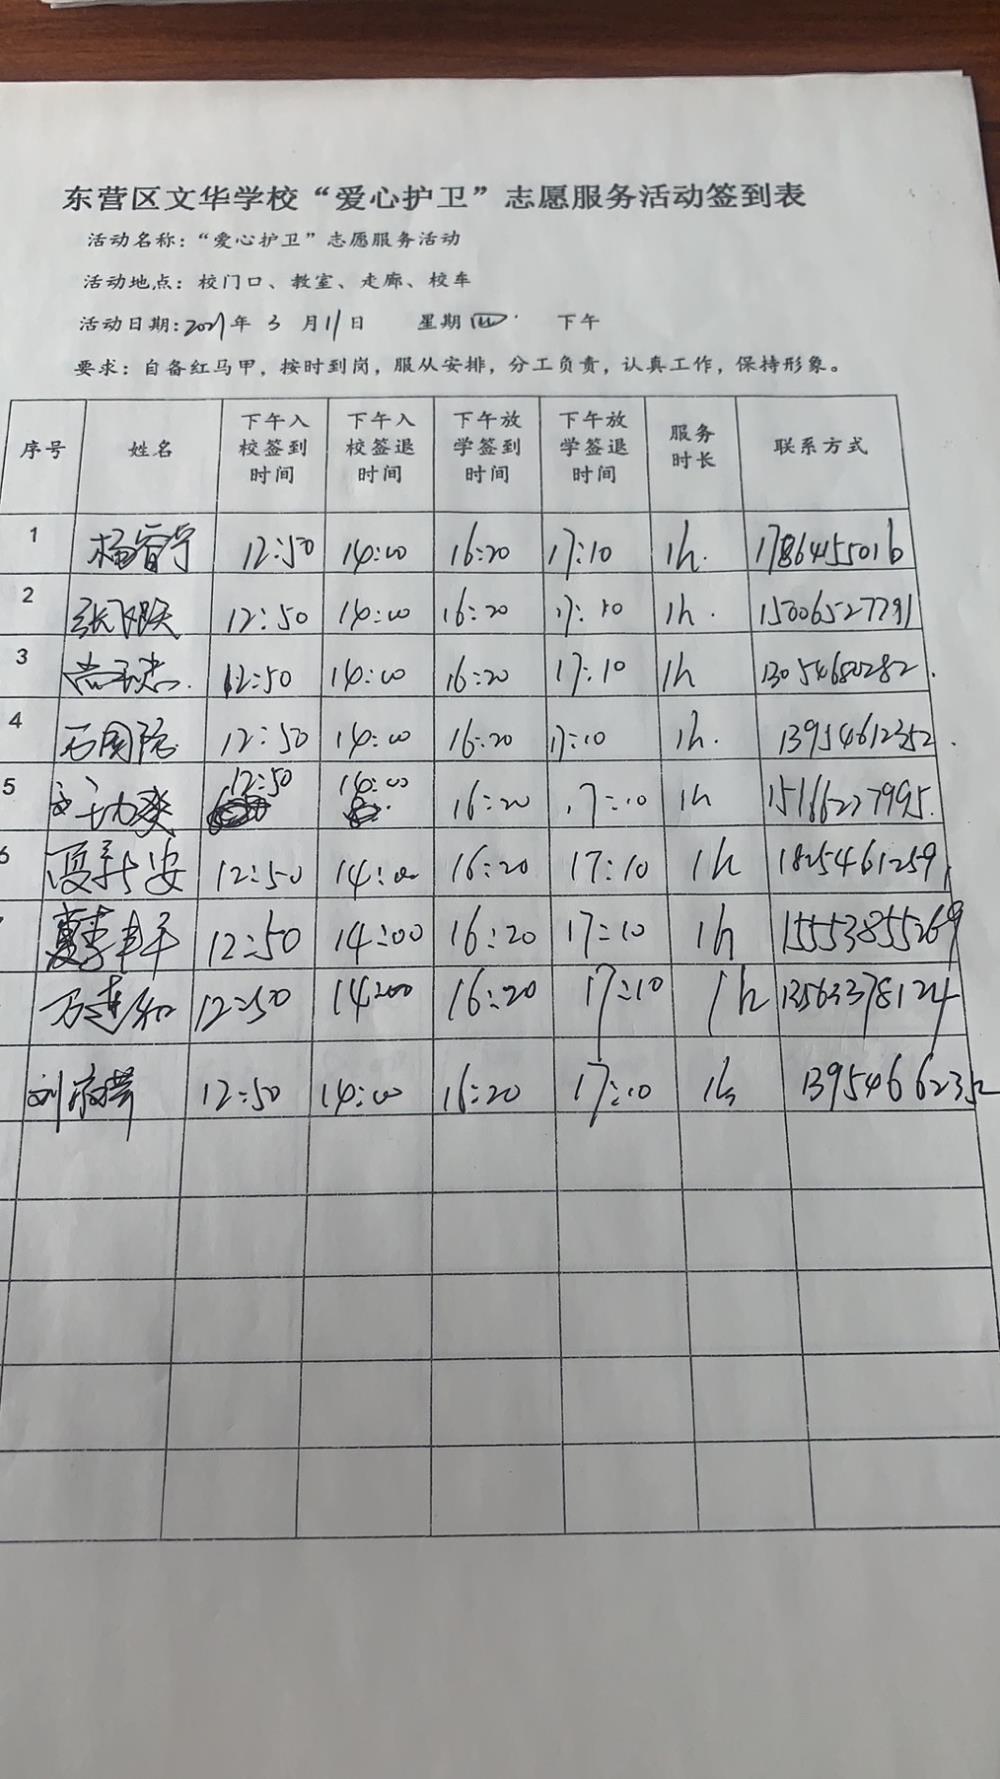 东营区文华学校“爱心护卫”志愿服务活动签到表
活动名称：“爱心护卫”志愿服务活动
活动地点：校门口、教室、走廊、校车
活动日期：2021年 3 月 11 日 星期四 下午
要求：自备红马甲，按时到岗，服从安排，分工负责，认真工作，保持形象。
序号 姓名 下午入校签到时间 下午入校签退时间 下午放学签到时间 下午放学签退时间 服务时长 联系方式
1 杨睿宁 12:50 14:00 16:20 17:10 1h. 17864155016
2 12:50 14:00 16:20 17:10 1h. 15006527791
3 12:50 14:00 16:20 17:10 1h 13054680282.
4 石国院 12:50 14:00 16:20 17:10 1h. 13954612352.
5 12:50 14:00 16:20 17:10 1h 15166227995.
6 夏新安 12:50 14:00 16:20 17:10 1h 18254612591
12:50 14:00 16:20 17:10 1h 15553855269
万连和 12:50 14:00 16:20 17:10 1h 13563378124
12:50 14:00 16:20 17:10 1h 13954662352